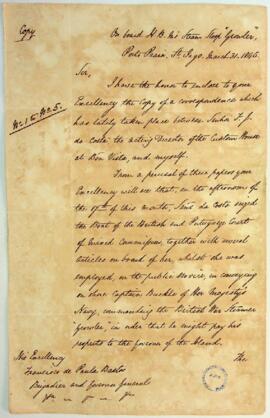 Copy
On board H. B. M's Steam Sloop "Growler",
Porto Praia, St. Iago. March 31. 1845.
Sir,
I have the honor to enclose to your
Excellency the Copy of a Correspondence which
has lately taken place between Senhor F. J.
da Costa the acting Director of the Custom House
at Boa Vista, and myself.
From a perusal of these papers your
Excellency will see that, in the afternoon of
the 17th of this month, Senr da Costa seized
the Boat of the British and Portuguese Court
of Mixed Commission, together with several
articles on board of her, whilst she was
employed, in the public Service, in conveying
on shore Captain Buckle of Her Majesty's
Navy, commanding the British War Steamer
Growler, in order that he might pay his
respects to the Governor of the Island.
The
His Excellency
Francisco de Paula Bastos
Brigadier and Governor General